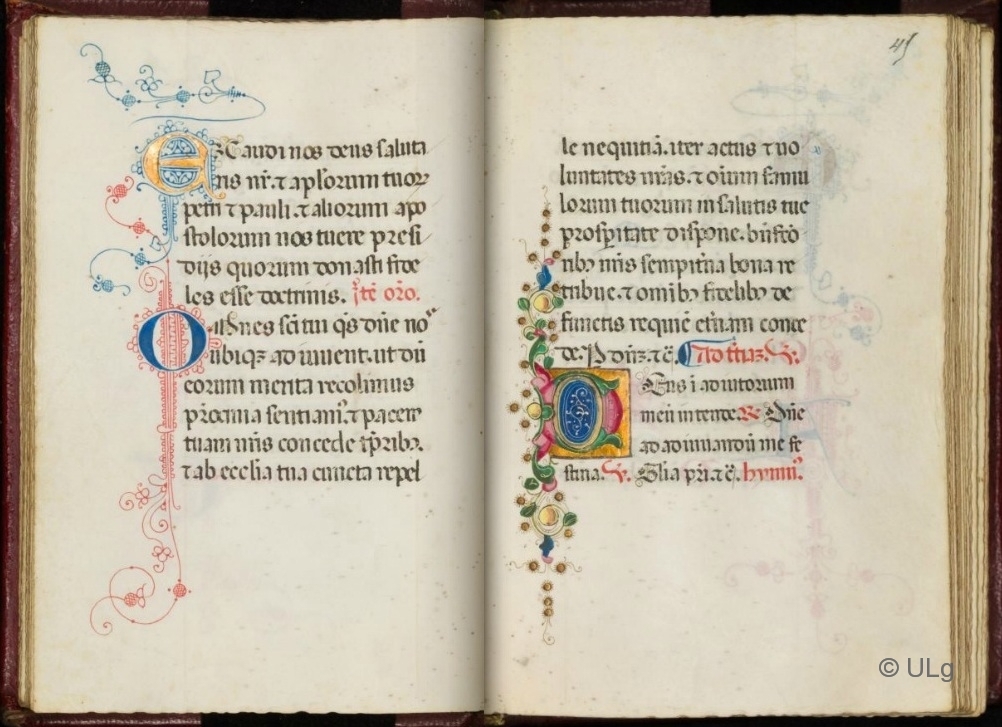 Exaudi nos deus saluta
ris nr̄. ⁊ aplorum tuoꝝ
petri ⁊ pauli. ⁊ aliorum apo
stolorum nos tuere presi
dijs quorum donasti fide
les esse doctrinis. Itē orō.
Omnes sc̄i tui q̄s dn̄e nos
ubiqꝫ adiuuent. ut dū
eorum merita recolimus
patrocinia sentiam᷒. ⁊ pacem
tuam nr̄is concede tp̄ribꝫ.
⁊ ab ecclīa tua cuncta repel
45
le nequitiā. iter actus ⁊ uo
luntates nr̄as. ⁊ oīum famu
lorum tuorum in salutis tue
prosperitate dispone. bn̄fcō
ribꝫ nr̄is sempit̄na bona re
tribue. ⁊ omibꝫ fidelibꝫ de
functis requiē et̄nam conce
de. P dn̄ꝫ. ⁊c̄. Ad t̄tiaꝫ. V.
Deus ī adiutorium
meū intende. R. Dn̄e
ad adiuuandū me fe
stina. V. Glīa pr̄i. ⁊c̄. hymn᷒.
© ULg